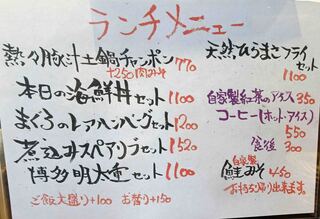 ランチメニュー
熱々豚汁土鍋チャンポン 770
+250 肉みそ
本日の海鮮丼セット 1100
まぐろのレアハンバーグセット 1200
煮込みスペアリブセット 1520
博多明太重セット 1100
ご飯大盛り+100 お替り+150
天然ひらまさフライ
セット
1100
自家製紅茶のアイス 350
コーヒー(ホット・アイス)
550
食後 300
自家製
鮭みそ 450
お持ち帰り出来ます。